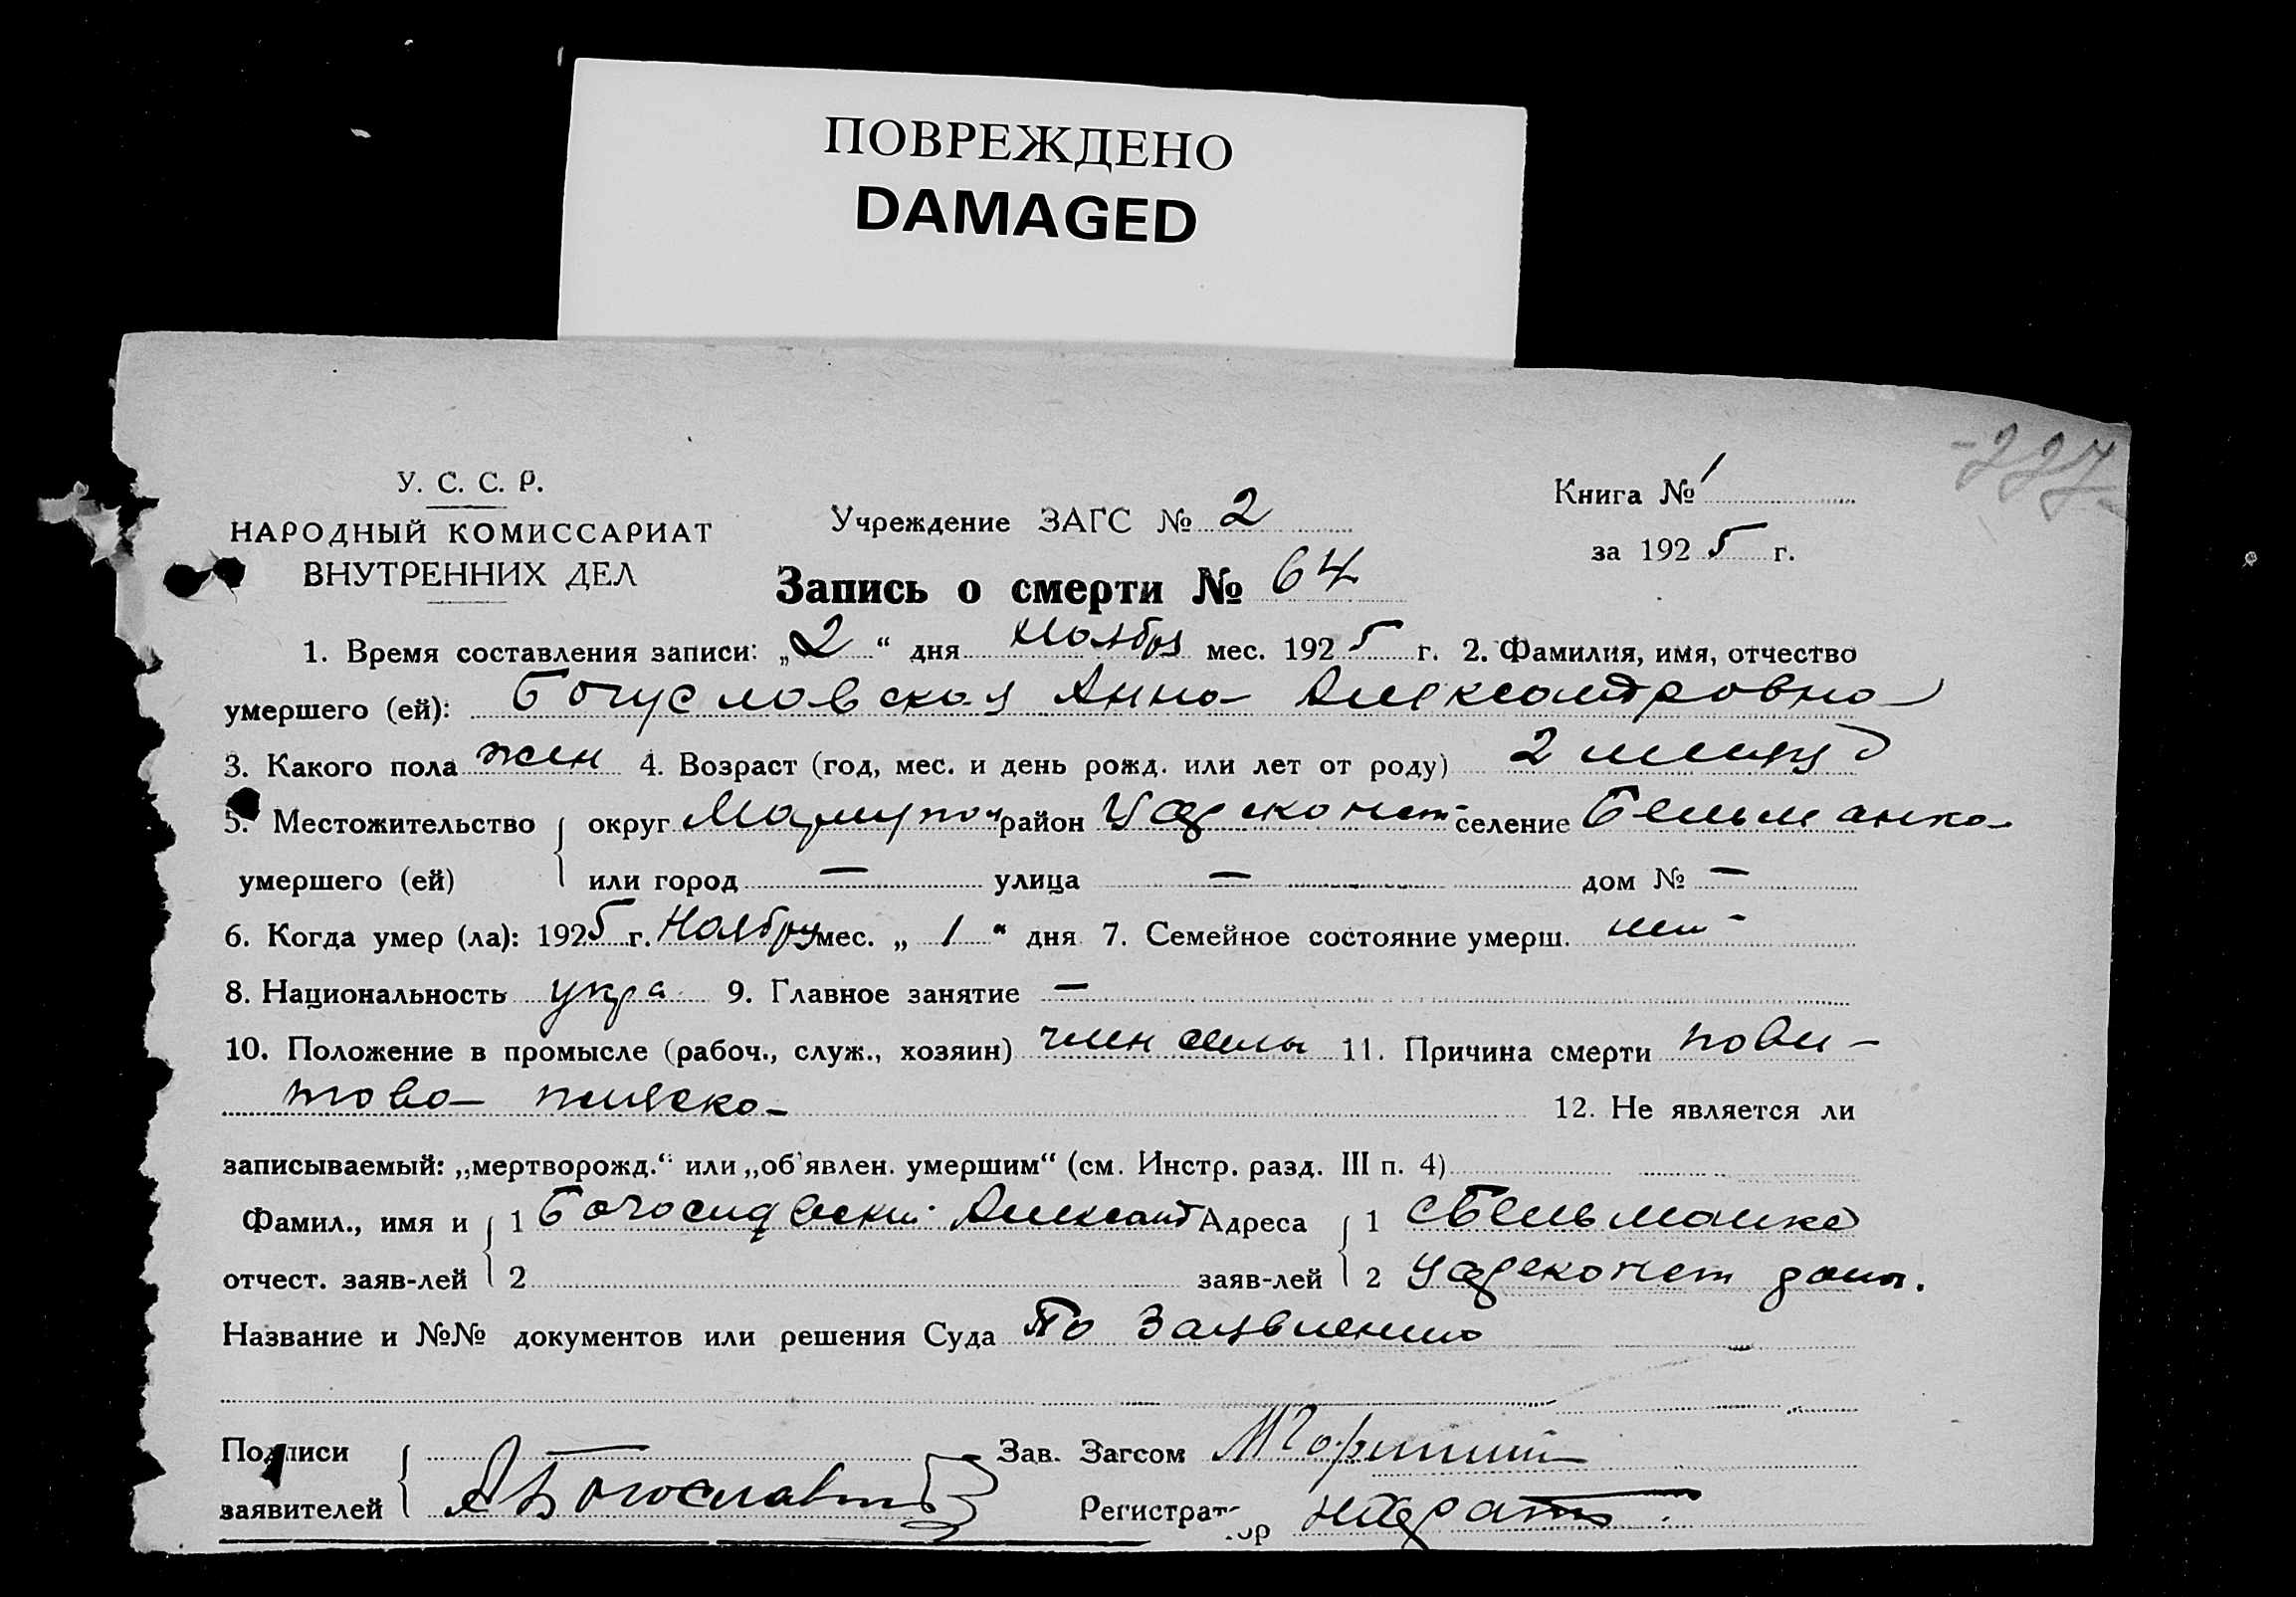 ПОВРЕЖДЕНО
DAMAGED
-227-
У. С. С. Р.
НАРОДНЫЙ КОМИССАРИАТ
ВНУТРЕННИХ ДЕЛ
Учреждение ЗАГС № 2
Книга № 1
за 1925 г.
Запись о смерти № 64
1. Время составления записи: „2“ дня Ноября мес. 1925 г. 2. Фамилия, имя, отчество
умершего (ей): Богуславская Анна Александровна
3. Какого пола жен 4. Возраст (год, мес. и день рожд. или лет от роду) 2 минут
5. Местожительство округ Мариупол район Цареконст селение Бельманка
умершего (ей) или город — улица — дом № —
6. Когда умер (ла): 1925 г. Ноября мес. „1“ дня 7. Семейное состояние умерш. нет
8. Национальность укра 9. Главное занятие —
10. Положение в промысле (рабоч., служ., хозяин) член семьи 11. Причина смерти
12. Не является ли
записываемый: „мертворожд.“ или „об'явлен. умершим“ (см. Инстр. разд. III п. 4)
Фамил., имя и 1 Александ Адреса 1 с Бельманка
отчест. заяв-лей 2 заяв-лей 2 Цареконст
Название и №№ документов или решения Суда По Заявлению
Подписи Зав. Загсом
заявителей Регистратор